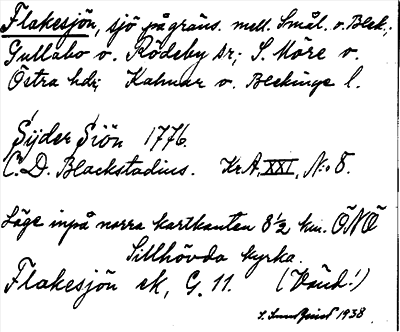 Flakesjön, sjö på gräns. mell. Smål. o. Blek.;
Gullabo o. Rödeby sr; S. Möre o.
Östra hdr; Kalmar o. Blekinge l.
Syder Siön 1776.
C. D. Blackstadius. Kr.A, XXI, N:o 8.
Läge inpå norra kartkanten 8½ km. ÖNÖ
Sillhövda kyrka.
Flakesjön ek, G. 11. (Vänd!)
1938